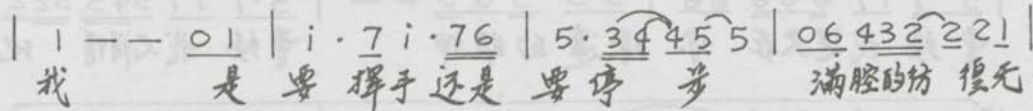 | 1 - - 0 1 | i · 7 i · 7 6 | 5 · 3 4 4 5 5 | 0 6 4 3 2 2 2 1 |
我 是 要 挥手 还是 要 停 步 满腔的 彷 徨无